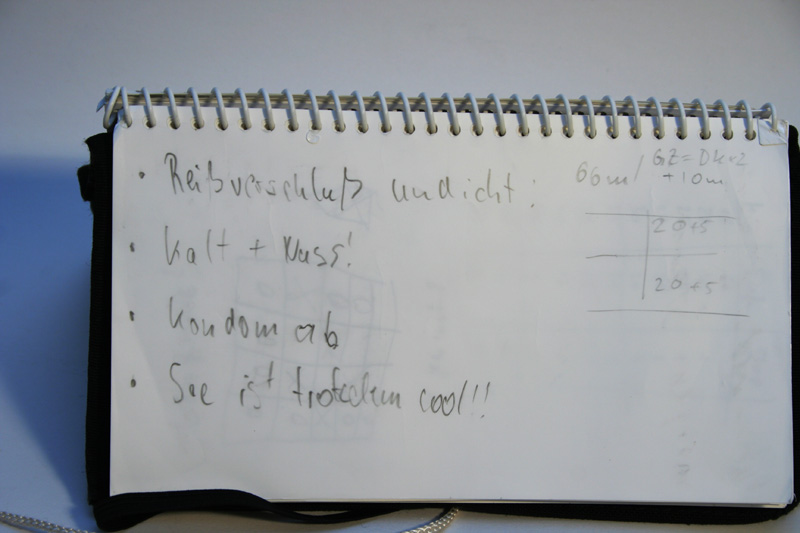 • Reißverschluß undicht:
• kalt + nass!
• Kondom ab
• See ist trotzdem cool!!
66m / GZ = DK×2
+10m
20+5
20+5